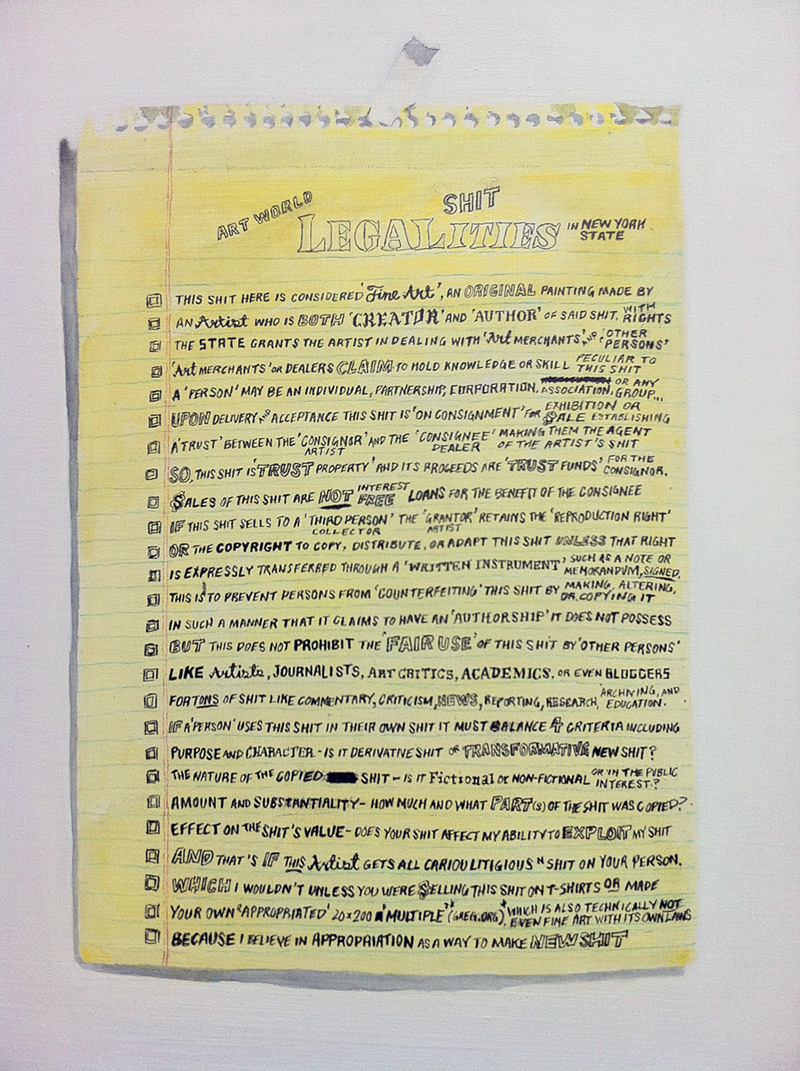 ART WORLD SHIT
LEGALITIES IN NEW YORK STATE
THIS SHIT HERE IS CONSIDERED 'Fine Art', AN ORIGINAL PAINTING MADE BY
AN Artist WHO IS BOTH 'CREATOR' AND 'AUTHOR' OF SAID SHIT, WITH RIGHTS
THE STATE GRANTS THE ARTIST IN DEALING WITH 'Art MERCHANTS', & 'OTHER PERSONS'
'Art MERCHANTS' OR DEALERS CLAIM TO HOLD KNOWLEDGE OR SKILL PECULIAR TO THIS SHIT
A 'PERSON' MAY BE AN INDIVIDUAL, PARTNERSHIP, CORPORATION, ASSOCIATION, OR ANY GROUP...
UPON DELIVERY & ACCEPTANCE THIS SHIT IS 'ON CONSIGNMENT' FOR EXHIBITION OR $ALE ESTABLISHING
A 'TRUST' BETWEEN THE 'CONSIGNOR' ARTIST AND THE 'CONSIGNEE' DEALER MAKING THEM THE AGENT OF THE ARTIST'S SHIT
SO, THIS SHIT IS 'TRUST PROPERTY' AND ITS PROCEEDS ARE 'TRUST FUNDS' FOR THE CONSIGNOR.
$ALES OF THIS SHIT ARE NOT INTEREST FREE LOANS FOR THE BENEFIT OF THE CONSIGNEE
IF THIS SHIT SELLS TO A 'THIRD PERSON' COLLECTOR THE 'GRANTOR' ARTIST RETAINS THE 'REPRODUCTION RIGHT'
OR THE COPYRIGHT TO COPY, DISTRIBUTE, OR ADAPT THIS SHIT UNLESS THAT RIGHT
IS EXPRESSLY TRANSFERRED THROUGH A 'WRITTEN INSTRUMENT', SUCH AS A NOTE OR MEMORANDVM, SIGNED.
THIS IS TO PREVENT PERSONS FROM 'COUNTERFEITING' THIS SHIT BY MAKING, ALTERING, OR COPYING IT
IN SUCH A MANNER THAT IT CLAIMS TO HAVE AN 'AUTHORSHIP' IT DOES NOT POSSESS
BUT THIS DOES NOT PROHIBIT THE 'FAIR USE' OF THIS SHIT BY 'OTHER PERSONS'
LIKE Artists, JOURNALISTS, ART CRITICS, ACADEMICS, OR EVEN BLOGGERS
FOR TONS OF SHIT LIKE COMMENTARY, CRITICISM, NEWS, REPORTING, RESEARCH, ARCHIVING, AND EDUCATION.
IF A 'PERSON' USES THIS SHIT IN THEIR OWN SHIT IT MUST BALANCE 4 CRITERIA INCLUDING
PURPOSE AND CHARACTER - IS IT DERIVATIVE SHIT OR TRANSFORMATIVE NEW SHIT?
THE NATURE OF THE COPIED SHIT - IS IT Fictional OR NON-FICTIONAL OR IN THE PUBLIC INTEREST?
AMOUNT AND SUBSTANTIALITY - HOW MUCH AND WHAT PART(S) OF THE SHIT WAS COPIED?
EFFECT ON THE SHIT'S VALUE - DOES YOUR SHIT AFFECT MY ABILITY TO EXPLOIT MY SHIT
AND THAT'S IF THIS Artist GETS ALL CARIOU LITIGIOUS SHIT ON YOUR PERSON.
WHICH I WOULDN'T UNLESS YOU WERE $ELLING THIS SHIT ON T-SHIRTS OR MADE
YOUR OWN 'APPROPRIATED' 20x200 'MULTIPLE' (GREG.ORG), WHICH IS ALSO TECHNICALLY NOT EVEN FINE ART WITH ITS OWN LAWS
BECAUSE I BELIEVE IN APPROPRIATION AS A WAY TO MAKE NEW SHIT